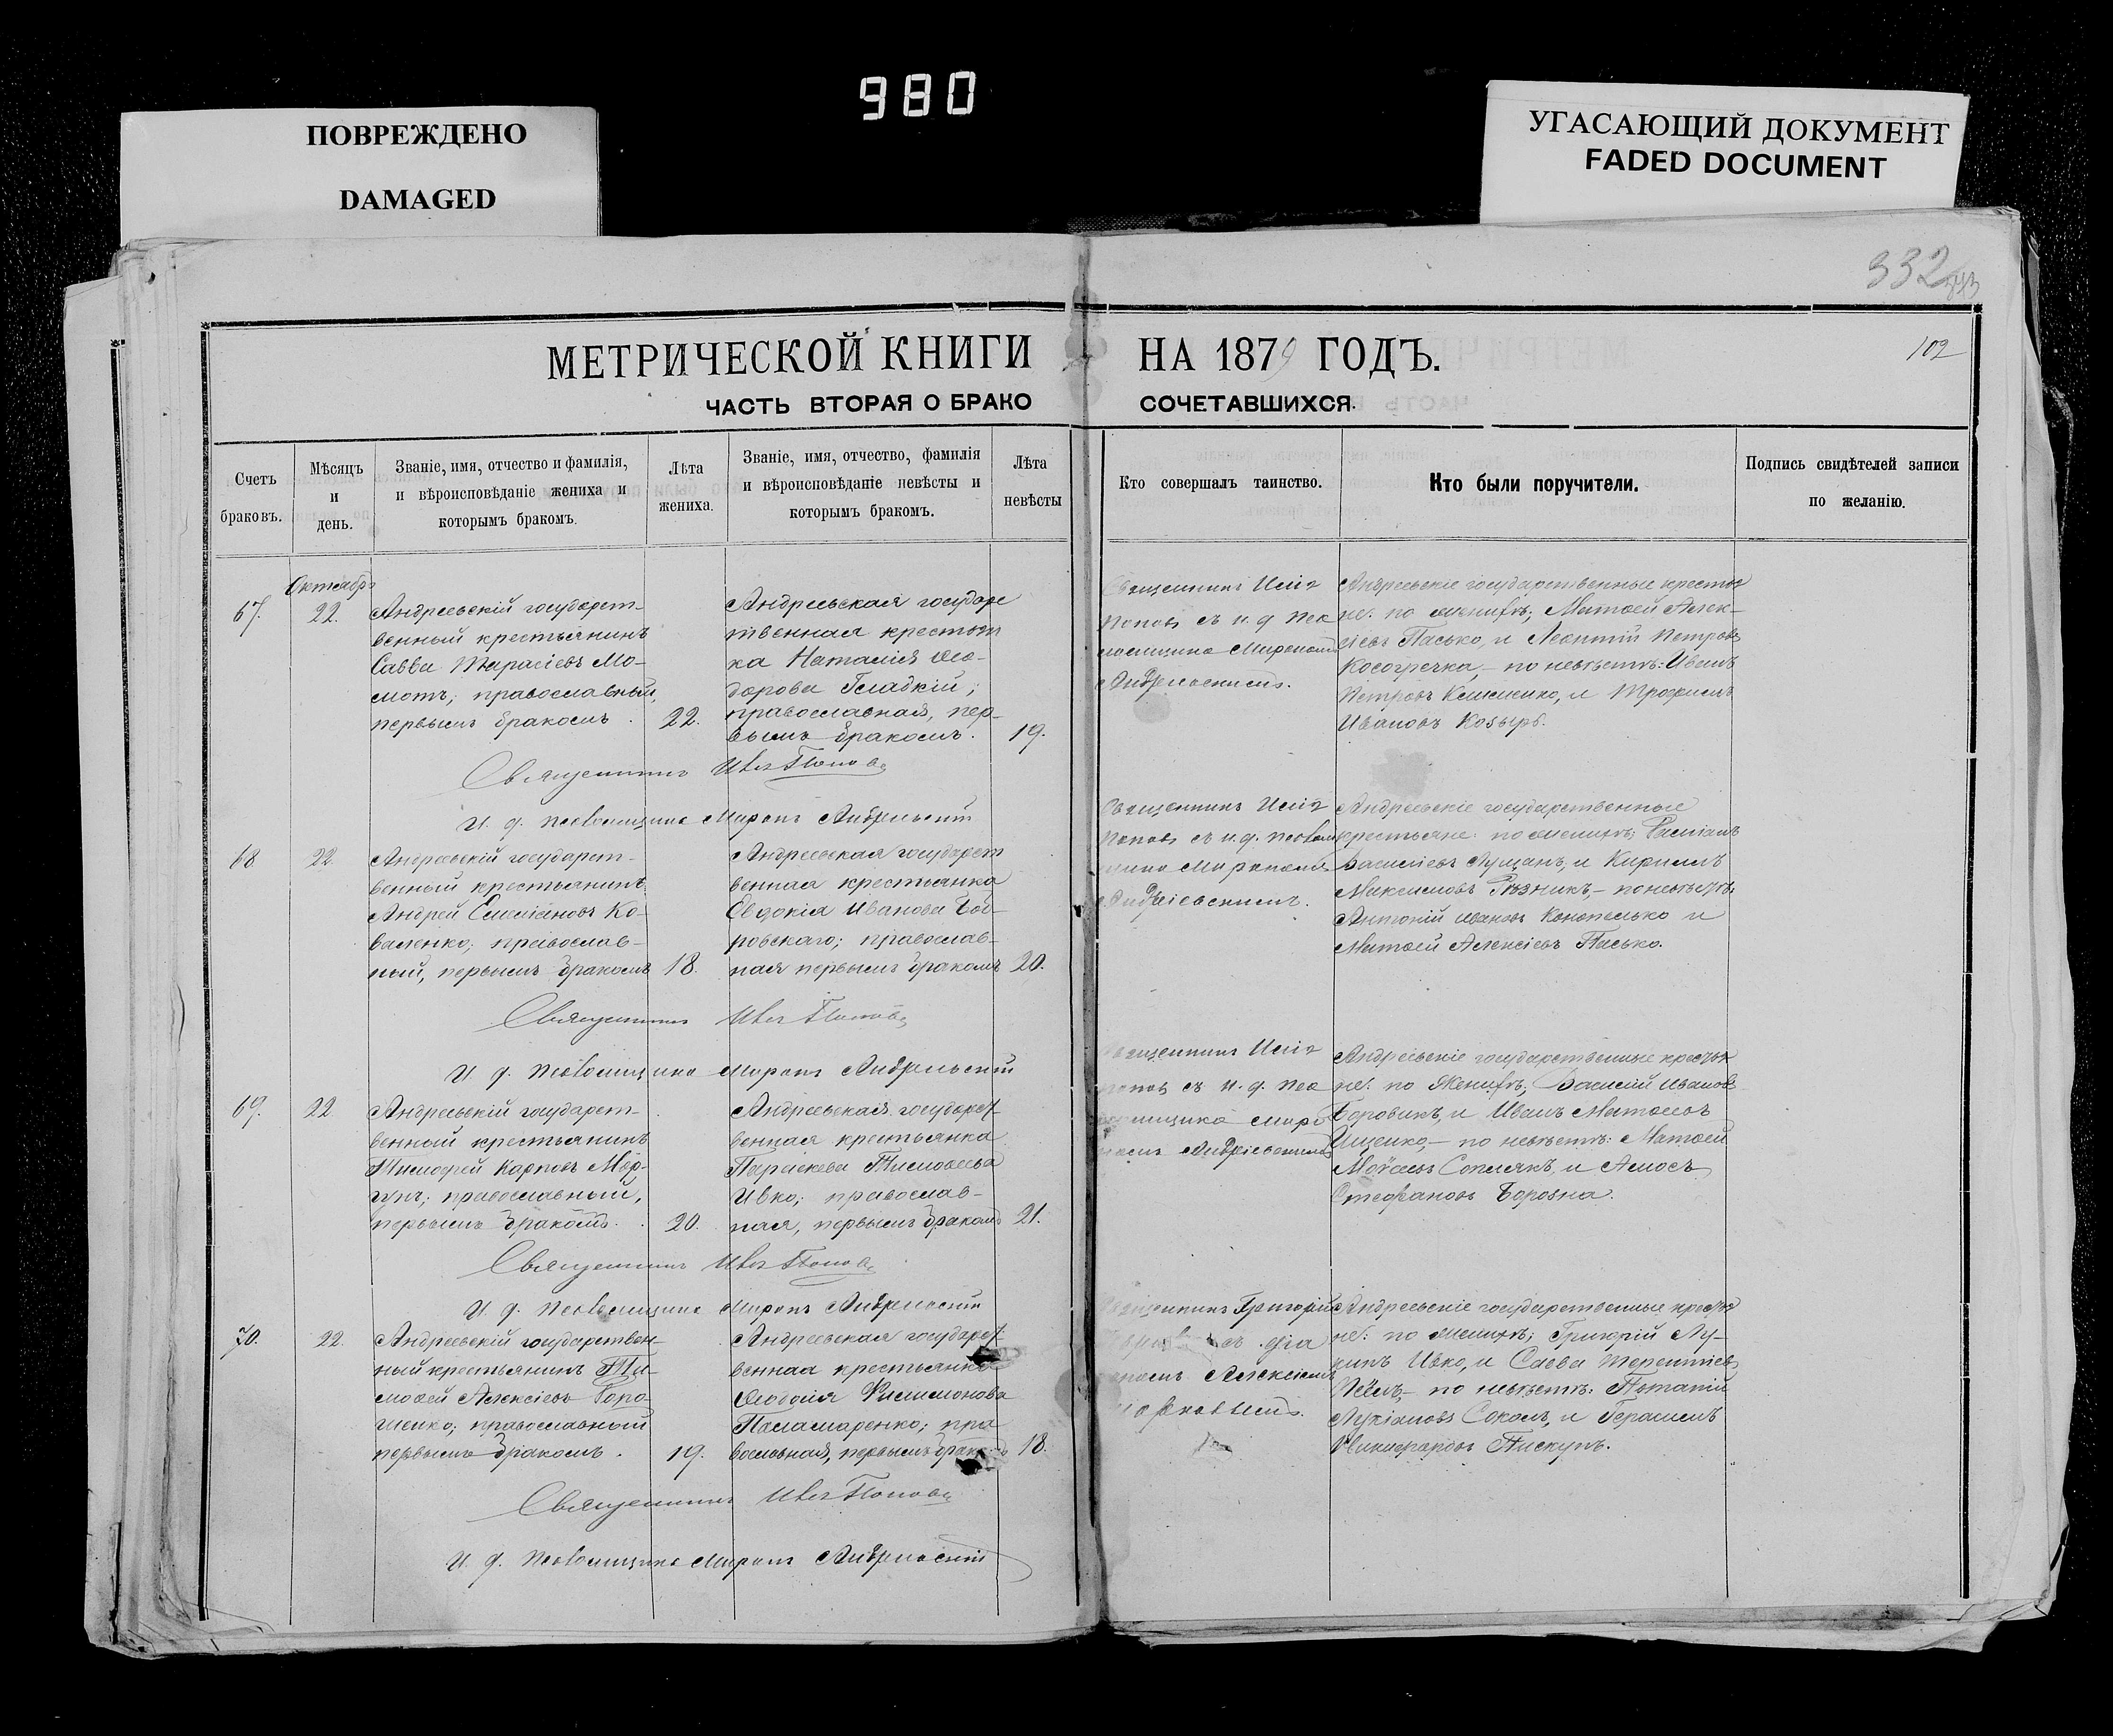 980
ПОВРЕЖДЕНО
DAMAGED
УГАСАЮЩИЙ ДОКУМЕНТ
FADED DOCUMENT
332
102
МЕТРИЧЕСКОЙ КНИГИ НА 1879 ГОДЪ.
ЧАСТЬ ВТОРАЯ О БРАКОСОЧЕТАВШИХСЯ.
Счетъ
браковъ.
Мѣсяцъ
и
день.
Званіе, имя, отчество и фамилія,
и вѣроисповѣданіе жениха и
которымъ бракомъ.
Лѣта
жениха.
Званіе, имя, отчество, фамилія
и вѣроисповѣданіе невѣсты и
которымъ бракомъ.
Лѣта
невѣсты
Кто совершалъ таинство.
Кто были поручители.
Подпись свидѣтелей записи
по желанію.
Октябрь
67.
22.
Андреевскій государст-
венный крестьянинъ
Савва Тарасіевъ Мо-
мотъ; православный,
первымъ бракомъ.
22.
Андреевская государс
твенная крестьян
ка Наталія Ѳео-
дорова Гладкій;
православная, пер-
вымъ бракомъ.
19.
Священникъ Илія
Поповъ съ и. д. пса
ломщика Мирономъ
Андріевскимъ.
Андреевскіе государственные крестья
не: по женихѣ; Матѳей Алек-
сіевъ Пасько, и Леонтій Петровъ
Косогречка, – по невѣстѣ: Иванъ
Петровъ Клименко, и Трофимъ
Ивановъ Козырь.
Священникъ Илія Поповъ
И. д. псаломщика Миронъ Андріевскій
68
22.
Андреевскій государст-
венный крестьянинъ
Андрей Емеліановъ Ко-
валенко; православ-
ный, первымъ бракомъ
18.
Андреевская государст
венная крестьянка
Евдокія Иванова Бо-
ровскаго; православ-
ная первымъ бракомъ
20.
Священникъ Илія
Поповъ съ и. д. псалом
щика Мирономъ
Андріевскимъ.
Андреевскіе государственные
крестьяне: по женихѣ;
Василіевъ Лущанъ, и Кириллъ
Максимовъ Рѣзникъ, – по невѣстѣ:
Антоній Ивановъ Конопелько и
Матѳей Алексіевъ Пасько.
Священникъ Илія Поповъ
И. д. псаломщика Миронъ Андріевскій
69.
22
Андреевскій государст-
венный крестьянинъ
Тимоѳей Карповъ Мор-
гунъ; православный,
первымъ бракомъ.
20.
Андреевская государст
венная крестьянка
Параскева Тимоѳеева
Ивко; православ-
ная, первымъ бракомъ
21.
Священникъ Илія
Поповъ съ и. д. пса
ломщика Миро
номъ Андріевскимъ
Андреевскіе государственные крестья
не: по женихѣ; Василій Ивановъ
Боровикъ, и Иванъ Матѳеевъ
Ищенко, – по невѣстѣ: Матѳей
Моѵсеевъ Соплякъ, и Амосъ
Стефановъ Борозна.
Священникъ Илія Поповъ
И. д. псаломщика Миронъ Андріевскій
70.
22.
Андреевскій государствен-
ный крестьянинъ Ти-
моѳей Алексіевъ
православный
первымъ бракомъ.
19.
Андреевская государст
венная крестьянка
Ѳеодосія Филимонова
Паламаренко; пра
вославная, первымъ бракомъ
18.
Священникъ Григорій
съ діа
кономъ Алексіемъ
Андреевскіе государственные крестья
не: по женихѣ; Григорій Лу-
кинъ Ивко, и Савва Терентіевъ
по невѣстѣ: Потапій
Лукіановъ Соколъ, и Герасимъ
Пискунъ.
Священникъ Илія Поповъ
И. д. псаломщика Миронъ Андріевскій